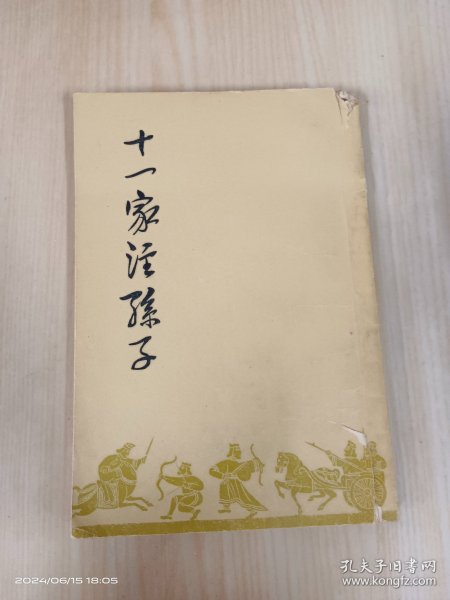 十一家注孫子
2024/06/15 18:05
孔夫子旧书网
www.kongfz.com